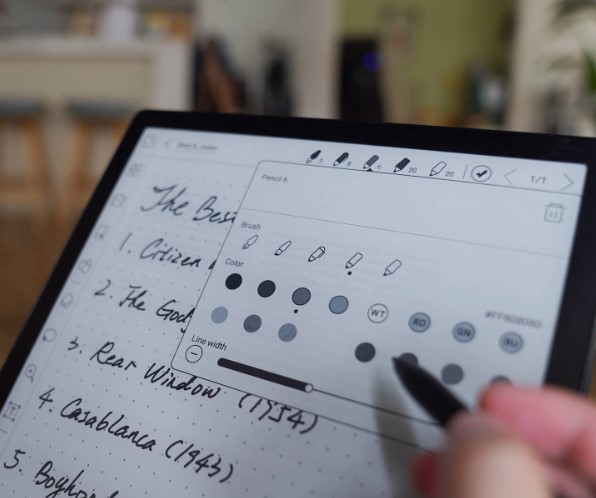 1/1
Pencil 6
The Best
Brush
1. Citizen
Color
#FF808080
WT RD GN BU
2. The God
Line width
3. Rear Window (1954)
4. Casablanca (1943)
5.